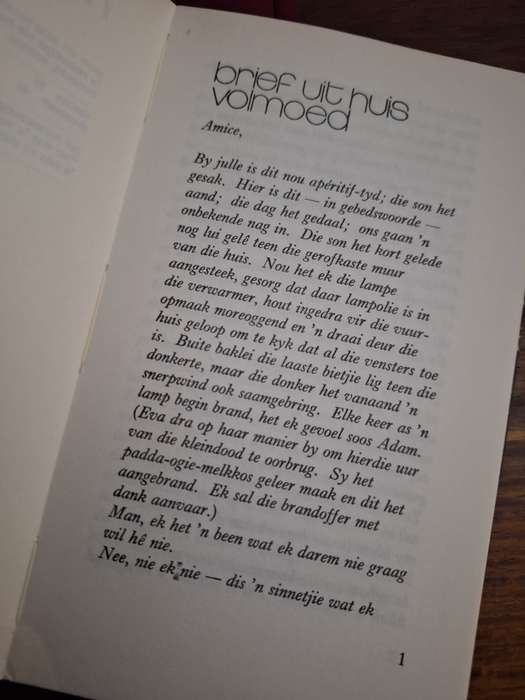 brief uit huis
volmoed
Amice,
By julle is dit nou apéritif-tyd; die son het
gesak. Hier is dit — in gebedswoorde —
aand; die dag het gedaal; ons gaan 'n
onbekende nag in. Die son het kort gelede
nog lui gelê teen die gerofkaste muur
van die huis. Nou het ek die lampe
aangesteek, gesorg dat daar lampolie is in
die verwarmer, hout ingedra vir die vuur-
opmaak moreoggend en 'n draai deur die
huis geloop om te kyk dat al die vensters toe
is. Buite baklei die laaste bietjie lig teen die
donkerte, maar die donker het vanaand 'n
snerpwind ook saamgebring. Elke keer as 'n
lamp begin brand, het ek gevoel soos Adam.
(Eva dra op haar manier by om hierdie uur
van die kleindood te oorbrug. Sy het
padda-ogie-melkkos geleer maak en dit het
aangebrand. Ek sal die brandoffer met
dank aanvaar.)
Man, ek het 'n been wat ek darem nie graag
wil hê nie.
Nee, nie ek nie — dis 'n sinnetjie wat ek
1